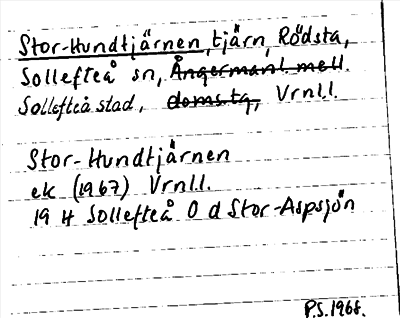 Stor-Hundtjärnen, tjärn, Rödsta,
Sollefteå sn, Ångermanl. mell.
Sollefteå stad, doms.tg, Vrnl.l.
Stor-Hundtjärnen
ek (1967) Vrnl.l.
19 H Sollefteå O d Stor-Aspsjön
P.S. 1968.